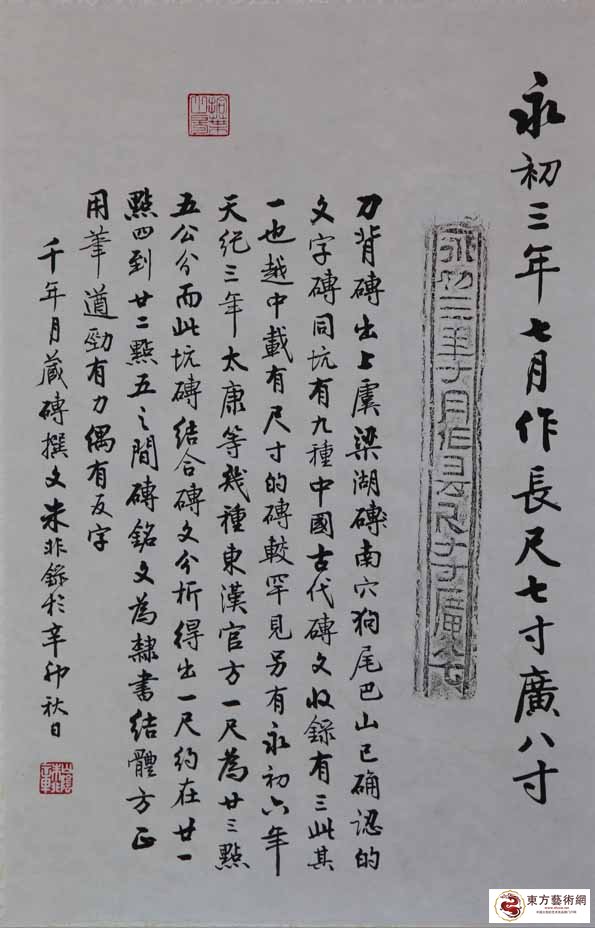 永初三年七月作長尺七寸廣八寸
永初三年七月作長尺七寸廣八寸
刀背磚出上虞梁湖磚南穴狗尾巴山已确認的
文字磚同坑有九種中國古代磚文收錄有三此其
一也越中載有尺寸的磚較罕見另有永初六年
天纪三年太康等幾種東漢官方一尺為廿三點
五公分而此坑磚結合磚文分析得出一尺約在廿一
點四到廿二點五之間磚銘文為隸書結體方正
用筆遒勁有力偶有反字
千年月藏磚撰文朱非錄於辛卯秋日
東方藝術網